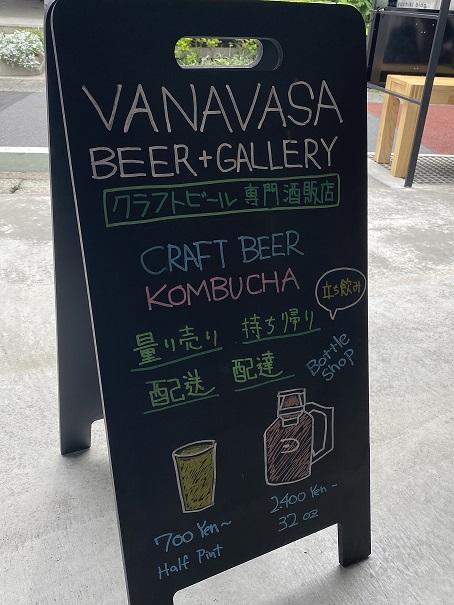 VANAVASA
BEER+GALLERY
クラフトビール専門酒販店
CRAFT BEER
KOMBUCHA
立ち飲み
量り売り 持ち帰り
配送 配達
Bottle
Shop
700 Yen~
Half Pint
2.400 Yen~
32 oz